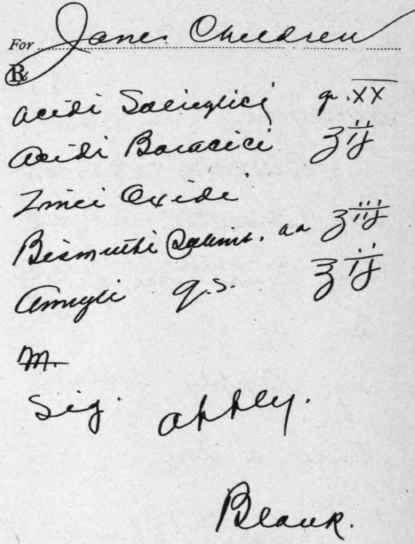 For Jones Children
℞
Acidi Salicylici gr. XX
Acidi Boracici ʒij
Zinci Oxidi
Bismuthi Subnit. aa ʒiij
Amyli q.s. ʒij
M.
Sig. Apply.
Blank.